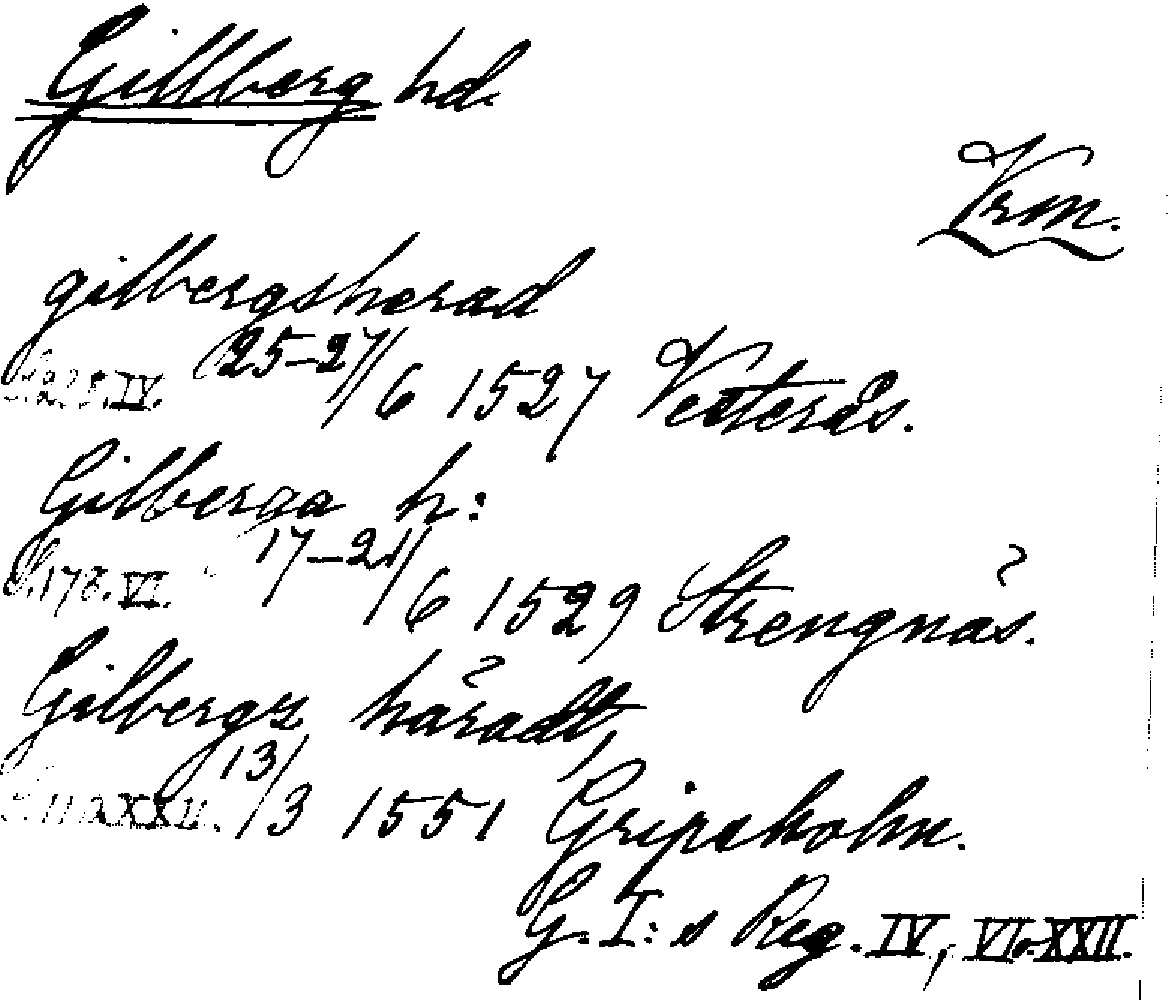 Gillberg hd.
Vrm.
gilbergsherad
S. 228. IV. 25-27/6 1527 Vesterås.
Gilberga h:
S. 178. VI. 17-21/6 1529 Strengnäs.
Gilbergx häradt,
13/3 1551 Gripsholm.
G. I:s Reg. IV, VI o. XXII.